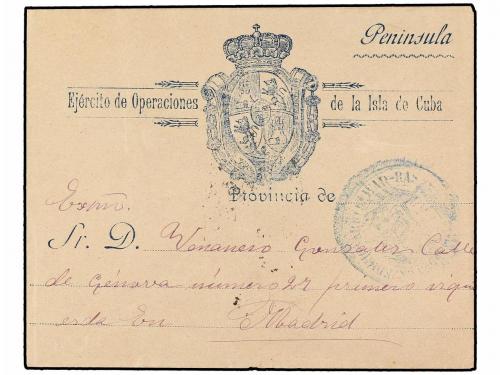 Península
Ejército de Operaciones de la Isla de Cuba
Provincia de
WAD-RAS
Exmo.
Sr. D. Venancio Gonzalez Calle
de Génova número 27 primero izqui
erda En Madrid